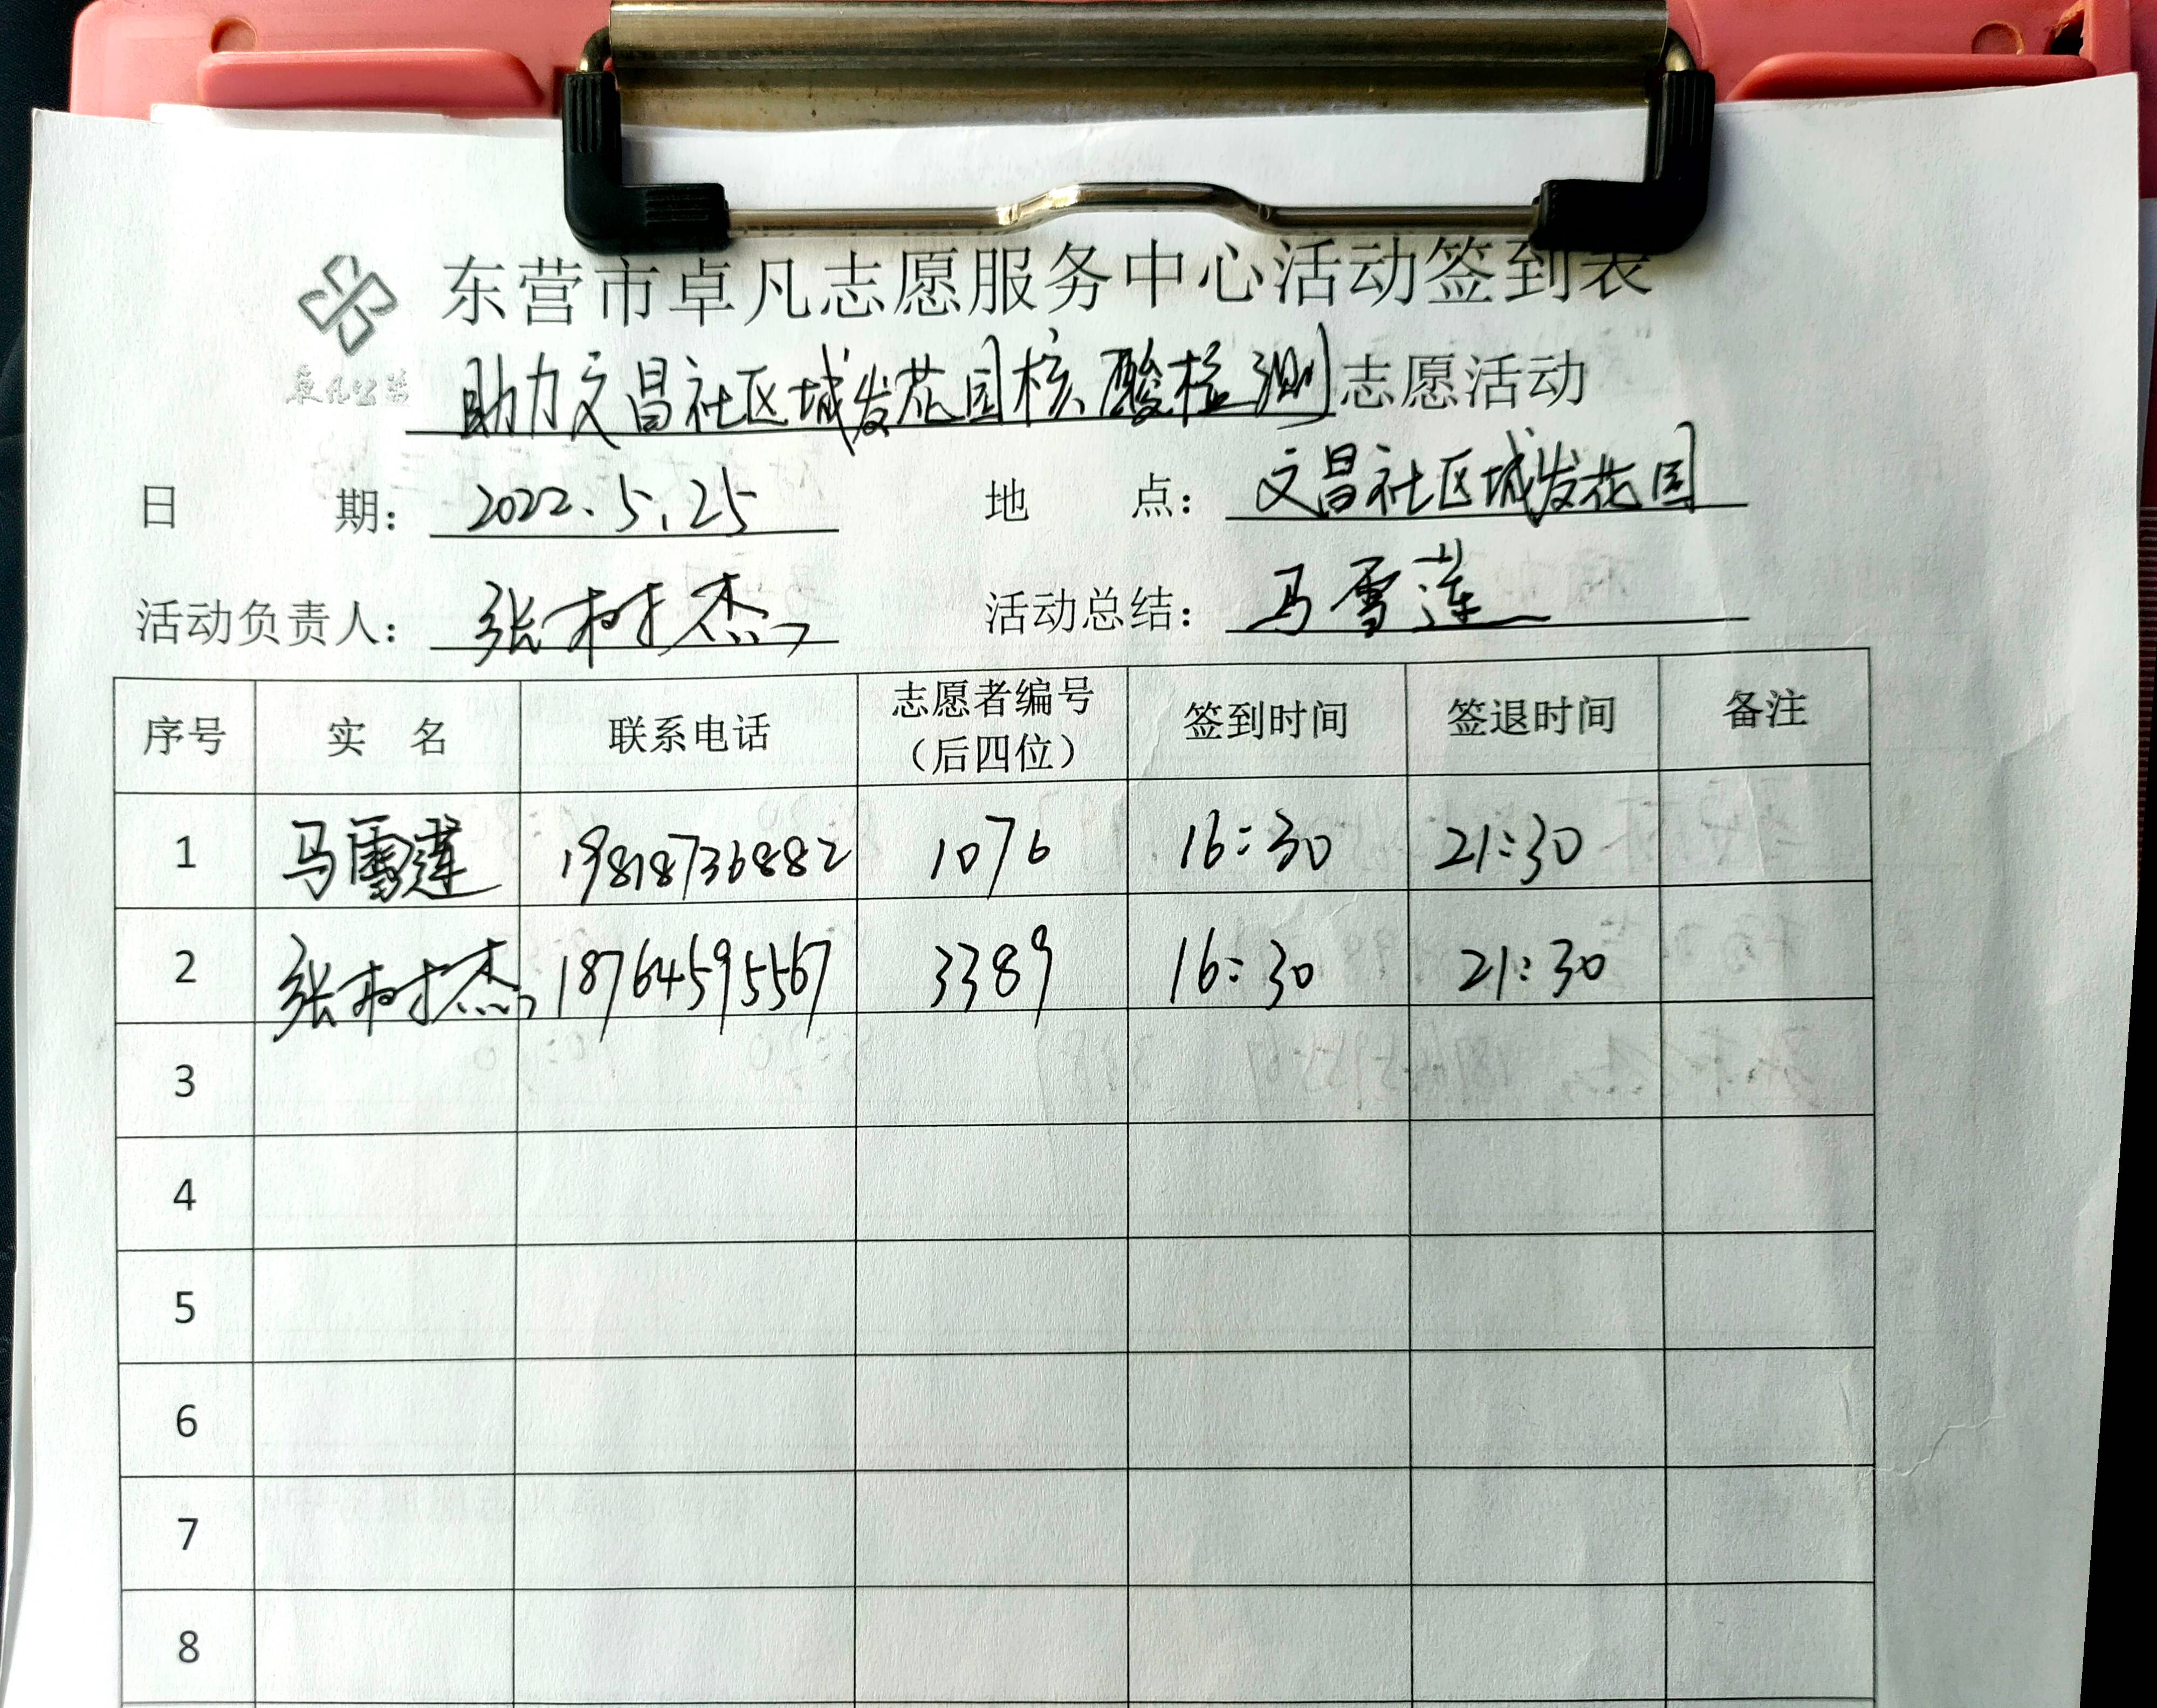 东营市卓凡志愿服务中心活动签到表
卓凡公益
助力文昌社区城发花园核酸检测志愿活动
日期：2022.5.25 地点：文昌社区城发花园
活动负责人：张树杰 活动总结：马雪莲
序号 实名 联系电话 志愿者编号（后四位） 签到时间 签退时间 备注
1 马雪莲 19818736882 1076 16:30 21:30
2 张树杰 18764595567 3389 16:30 21:30
3
4
5
6
7
8